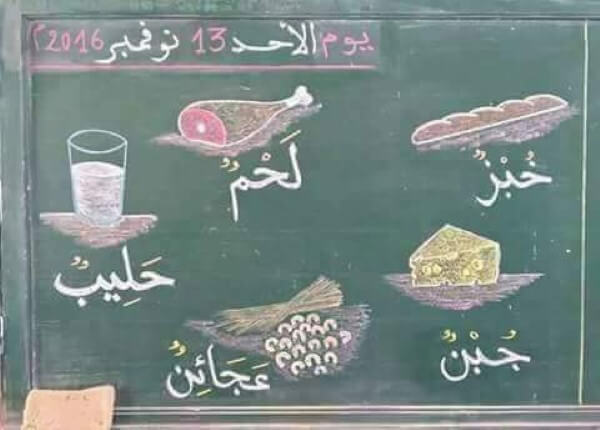 يوم الأحد 13 نوفمبر 2016م
خُبْزٌ
لَحْمٌ
حَلِيبٌ
جُبْنٌ
عَجَائِنٌ